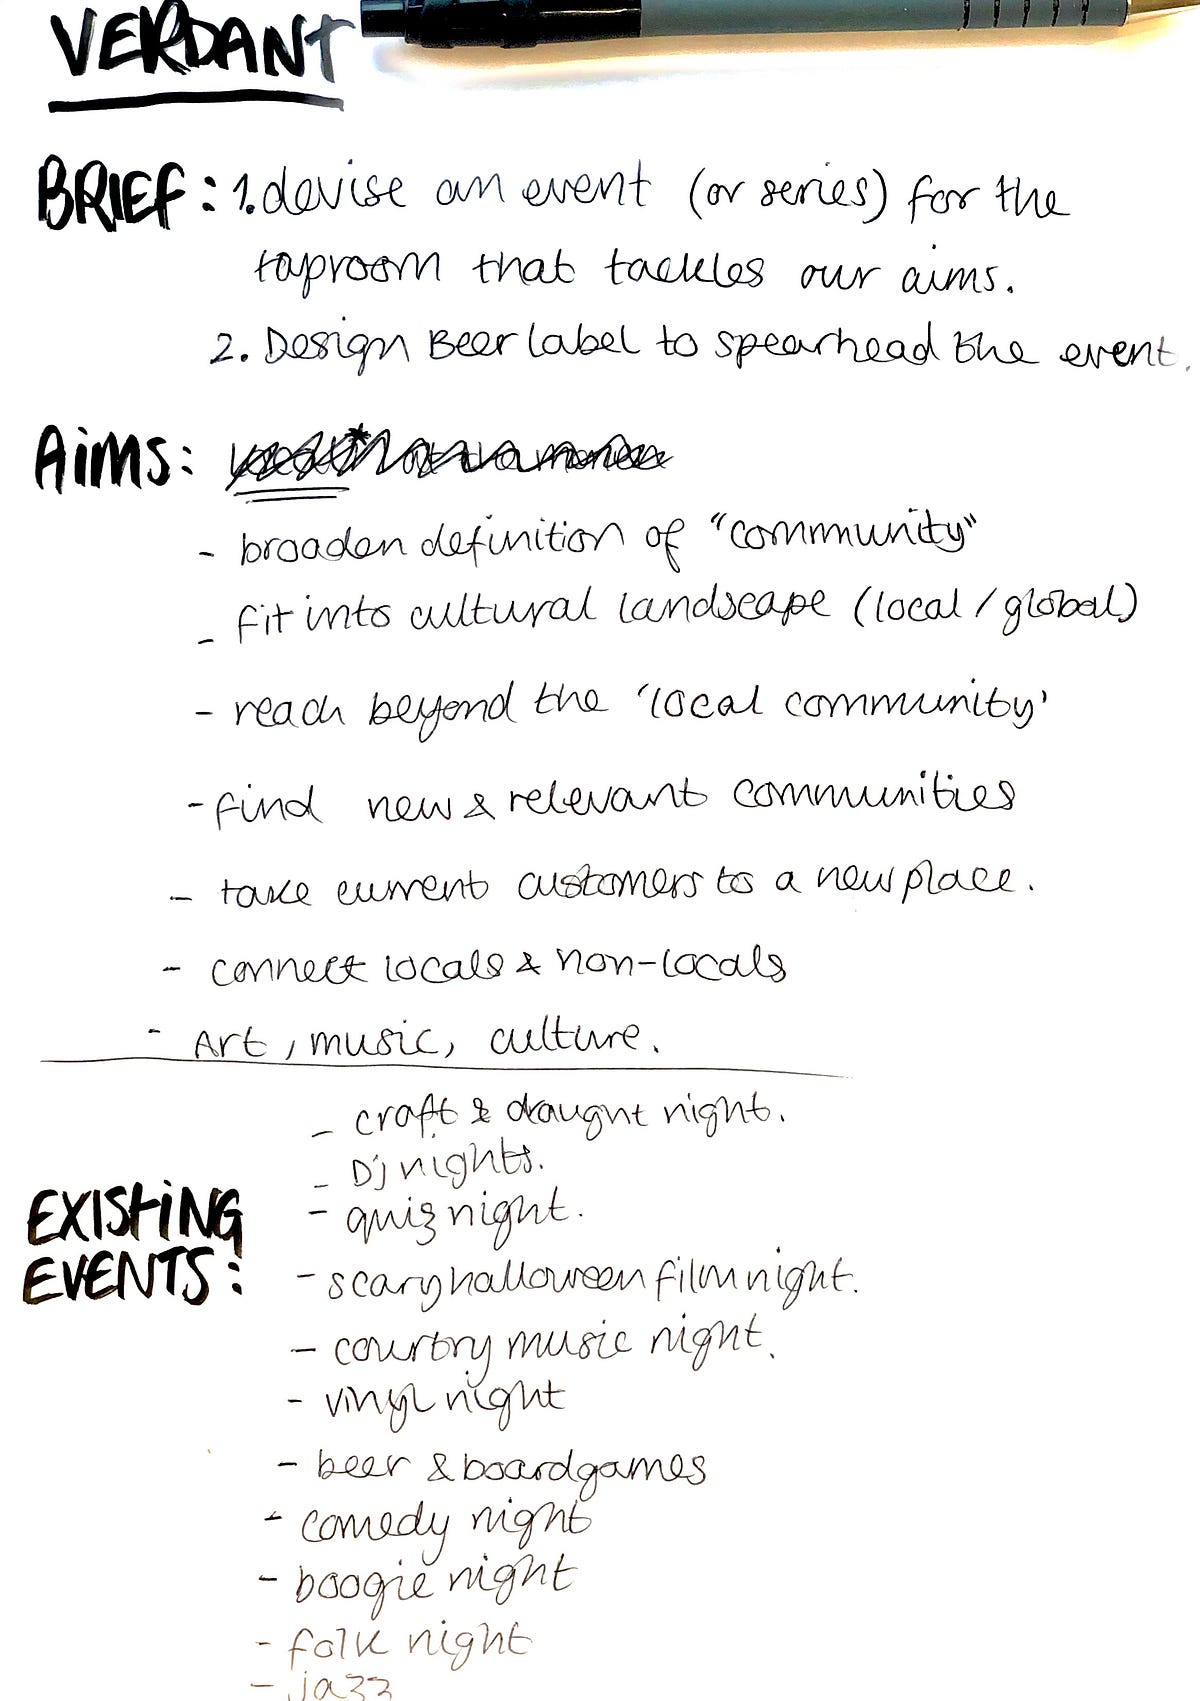 VERDANT
BRIEF: 1. devise an event (or series) for the
taproom that tackles our aims.
2. Design Beer label to spearhead the event.
Aims:
- broaden definition of "community"
- fit into cultural landscape (local / global)
- reach beyond the 'local community'
- find new & relevant communities
- take current customers to a new place.
- connect locals & non-locals
- Art, music, culture.
- craft & draught night.
- Dj nights.
EXISTING
- quiz night.
EVENTS:
- scary halloween film night.
- country music night.
- vinyl night
- beer & boardgames
- comedy night
- boogie night
- folk night
- jazz